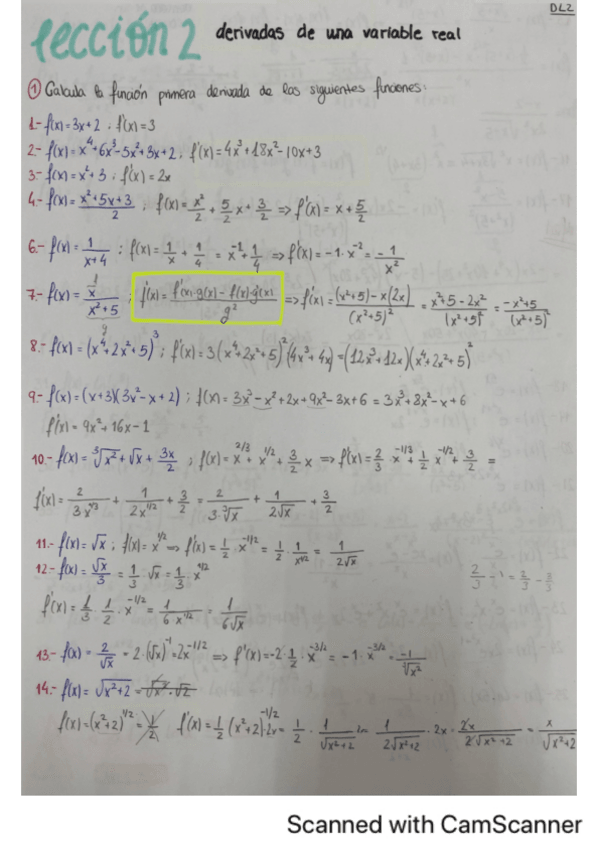 DL2
lección 2 derivadas de una variable real
① Calcula la función primera derivada de las siguientes funciones:
1.- f(x) = 3x+2 ; f'(x) = 3
2.- f(x) = x⁴+6x³-5x²+3x+2 ; f'(x) = 4x³+18x²-10x+3
3.- f(x) = x²+3 ; f'(x) = 2x
4.- f(x) = (x²+5x+3)/2 ; f(x) = x²/2 + 5/2 x + 3/2 => f'(x) = x + 5/2
6.- f(x) = 1/(x+4) ; f(x) = 1/x + 1/4 = x⁻¹ + 1/4 => f'(x) = -1·x⁻² = -1/x²
7.- f(x) = x/(x²+5) ; f'(x) = (f'(x)·g(x) - f(x)·g'(x))/g² => f'(x) = ((x²+5) - x(2x))/(x²+5)² = (x²+5-2x²)/(x²+5)² = (-x²+5)/(x²+5)²
8.- f(x) = (x⁴+2x²+5)³ ; f'(x) = 3(x⁴+2x²+5)²(4x³+4x) = (12x³+12x)(x⁴+2x²+5)²
9.- f(x) = (x+3)(3x²-x+2) ; f(x) = 3x³-x²+2x+9x²-3x+6 = 3x³+8x²-x+6
f'(x) = 9x²+16x-1
10.- f(x) = ∛x² + √x + 3x/2 ; f(x) = x^2/3 + x^1/2 + 3/2 x => f'(x) = 2/3 x^-1/3 + 1/2 x^-1/2 + 3/2 =
f'(x) = 2/(3x^1/3) + 1/(2x^1/2) + 3/2 = 2/(3·∛x) + 1/(2√x) + 3/2
11.- f(x) = √x ; f(x) = x^1/2 => f'(x) = 1/2 · x^-1/2 = 1/2 · 1/x^1/2 = 1/(2√x)
12.- f(x) = √x/3 = 1/3 · √x = 1/3 · x^1/2
f'(x) = 1/3 · 1/2 · x^-1/2 = 1/(6x^1/2) = 1/(6√x)
13.- f(x) = 2/√x = 2·(√x)⁻¹ = 2x^-1/2 => f'(x) = -2·1/2·x^-3/2 = -1·x^-3/2 = -1/∛x²
14.- f(x) = √(x²+2) = √x²·√2
f(x) = (x²+2)^1/2 = 1/2 f'(x) = 1/2 (x²+2)^-1/2·2x = 1/2 · 1/√(x²+2) 2x 1/(2√(x²+2)) · 2x · 2x/(2√(x²+2)) = x/√(x²+2)
Scanned with CamScanner